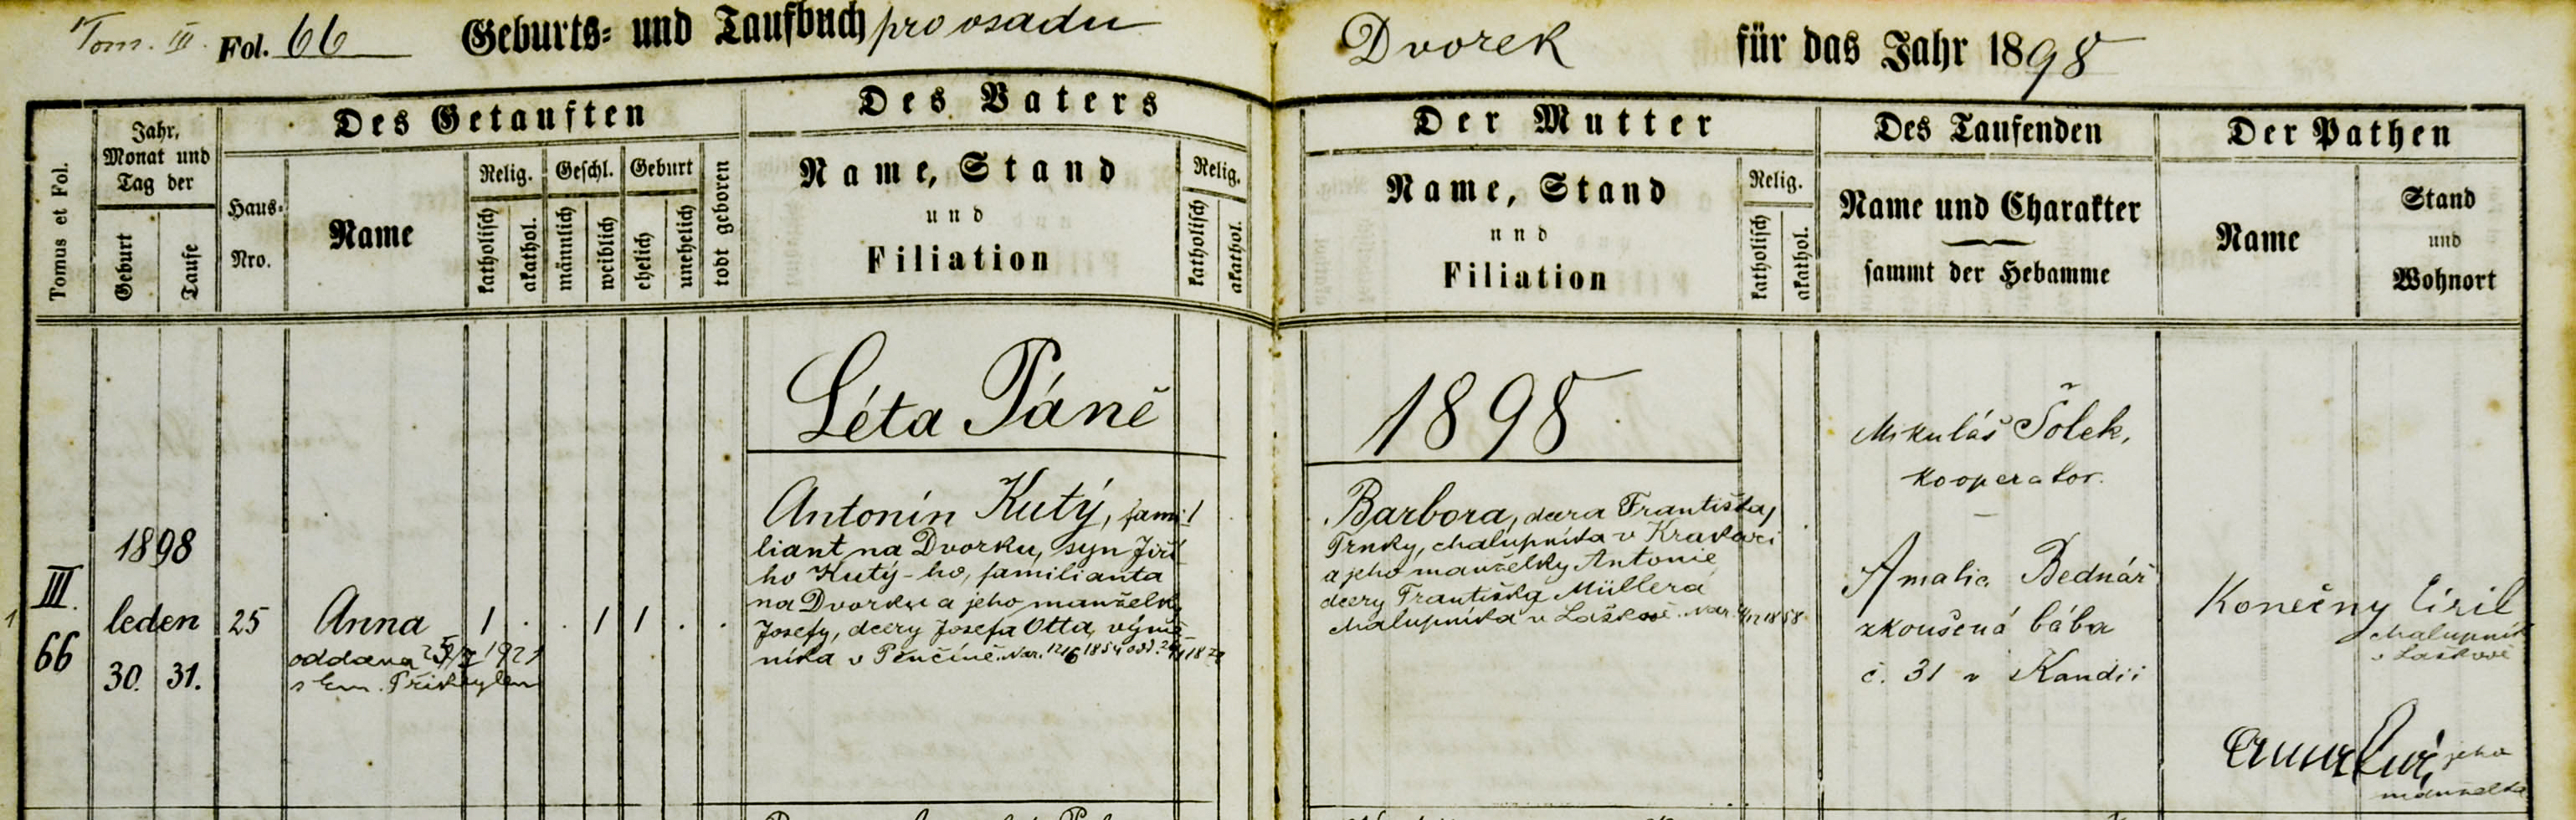 Tom. III. Fol. 66 Geburts- und Taufbuch pro osadu Dvorek für das Jahr 1898
Tomus et Fol.
Jahr, Monat und Tag der
Geburt
Taufe
Des Getauften
Haus-Nro.
Name
Relig.
katholisch
akathol.
Geschl.
männlich
weiblich
Geburt
ehelich
unehelich
todt geboren
Des Vaters
Name, Stand
und
Filiation
Relig.
katholisch
akathol.
Der Mutter
Name, Stand
und
Filiation
Relig.
katholisch
akathol.
Des Taufenden
Name und Charakter
sammt der Hebamme
Der Pathen
Name
Stand
und
Wohnort
Léta Páně 1898
1
III.
66
1898
leden
30. 31.
25
Anna
oddana 1921
s Em. Přikrylem
1 . . 1 1 . .
Antonín Kutý, fami-
liant na Dvorku, syn Jiří-
ho Kutý-ho, familianta
na Dvorku a jeho manželky
Josefy, dcery Josefa Otta, výměn-
níka v Pěnčíně. Nar. 12/6 1854
1
Barbora, dcera Františka
Trnky, chalupníka v Krakovci
a jeho manželky Antonie
dcery Františka Müllera
chalupníka v Laškově. Nar. 4/12 1858
Mikuláš Šólek,
kooperator.
Amalie Bednář
zkoušená bába
č. 31 v Kandii
Konečny Ciril
chalupník
v Laškově
jeho
manželka